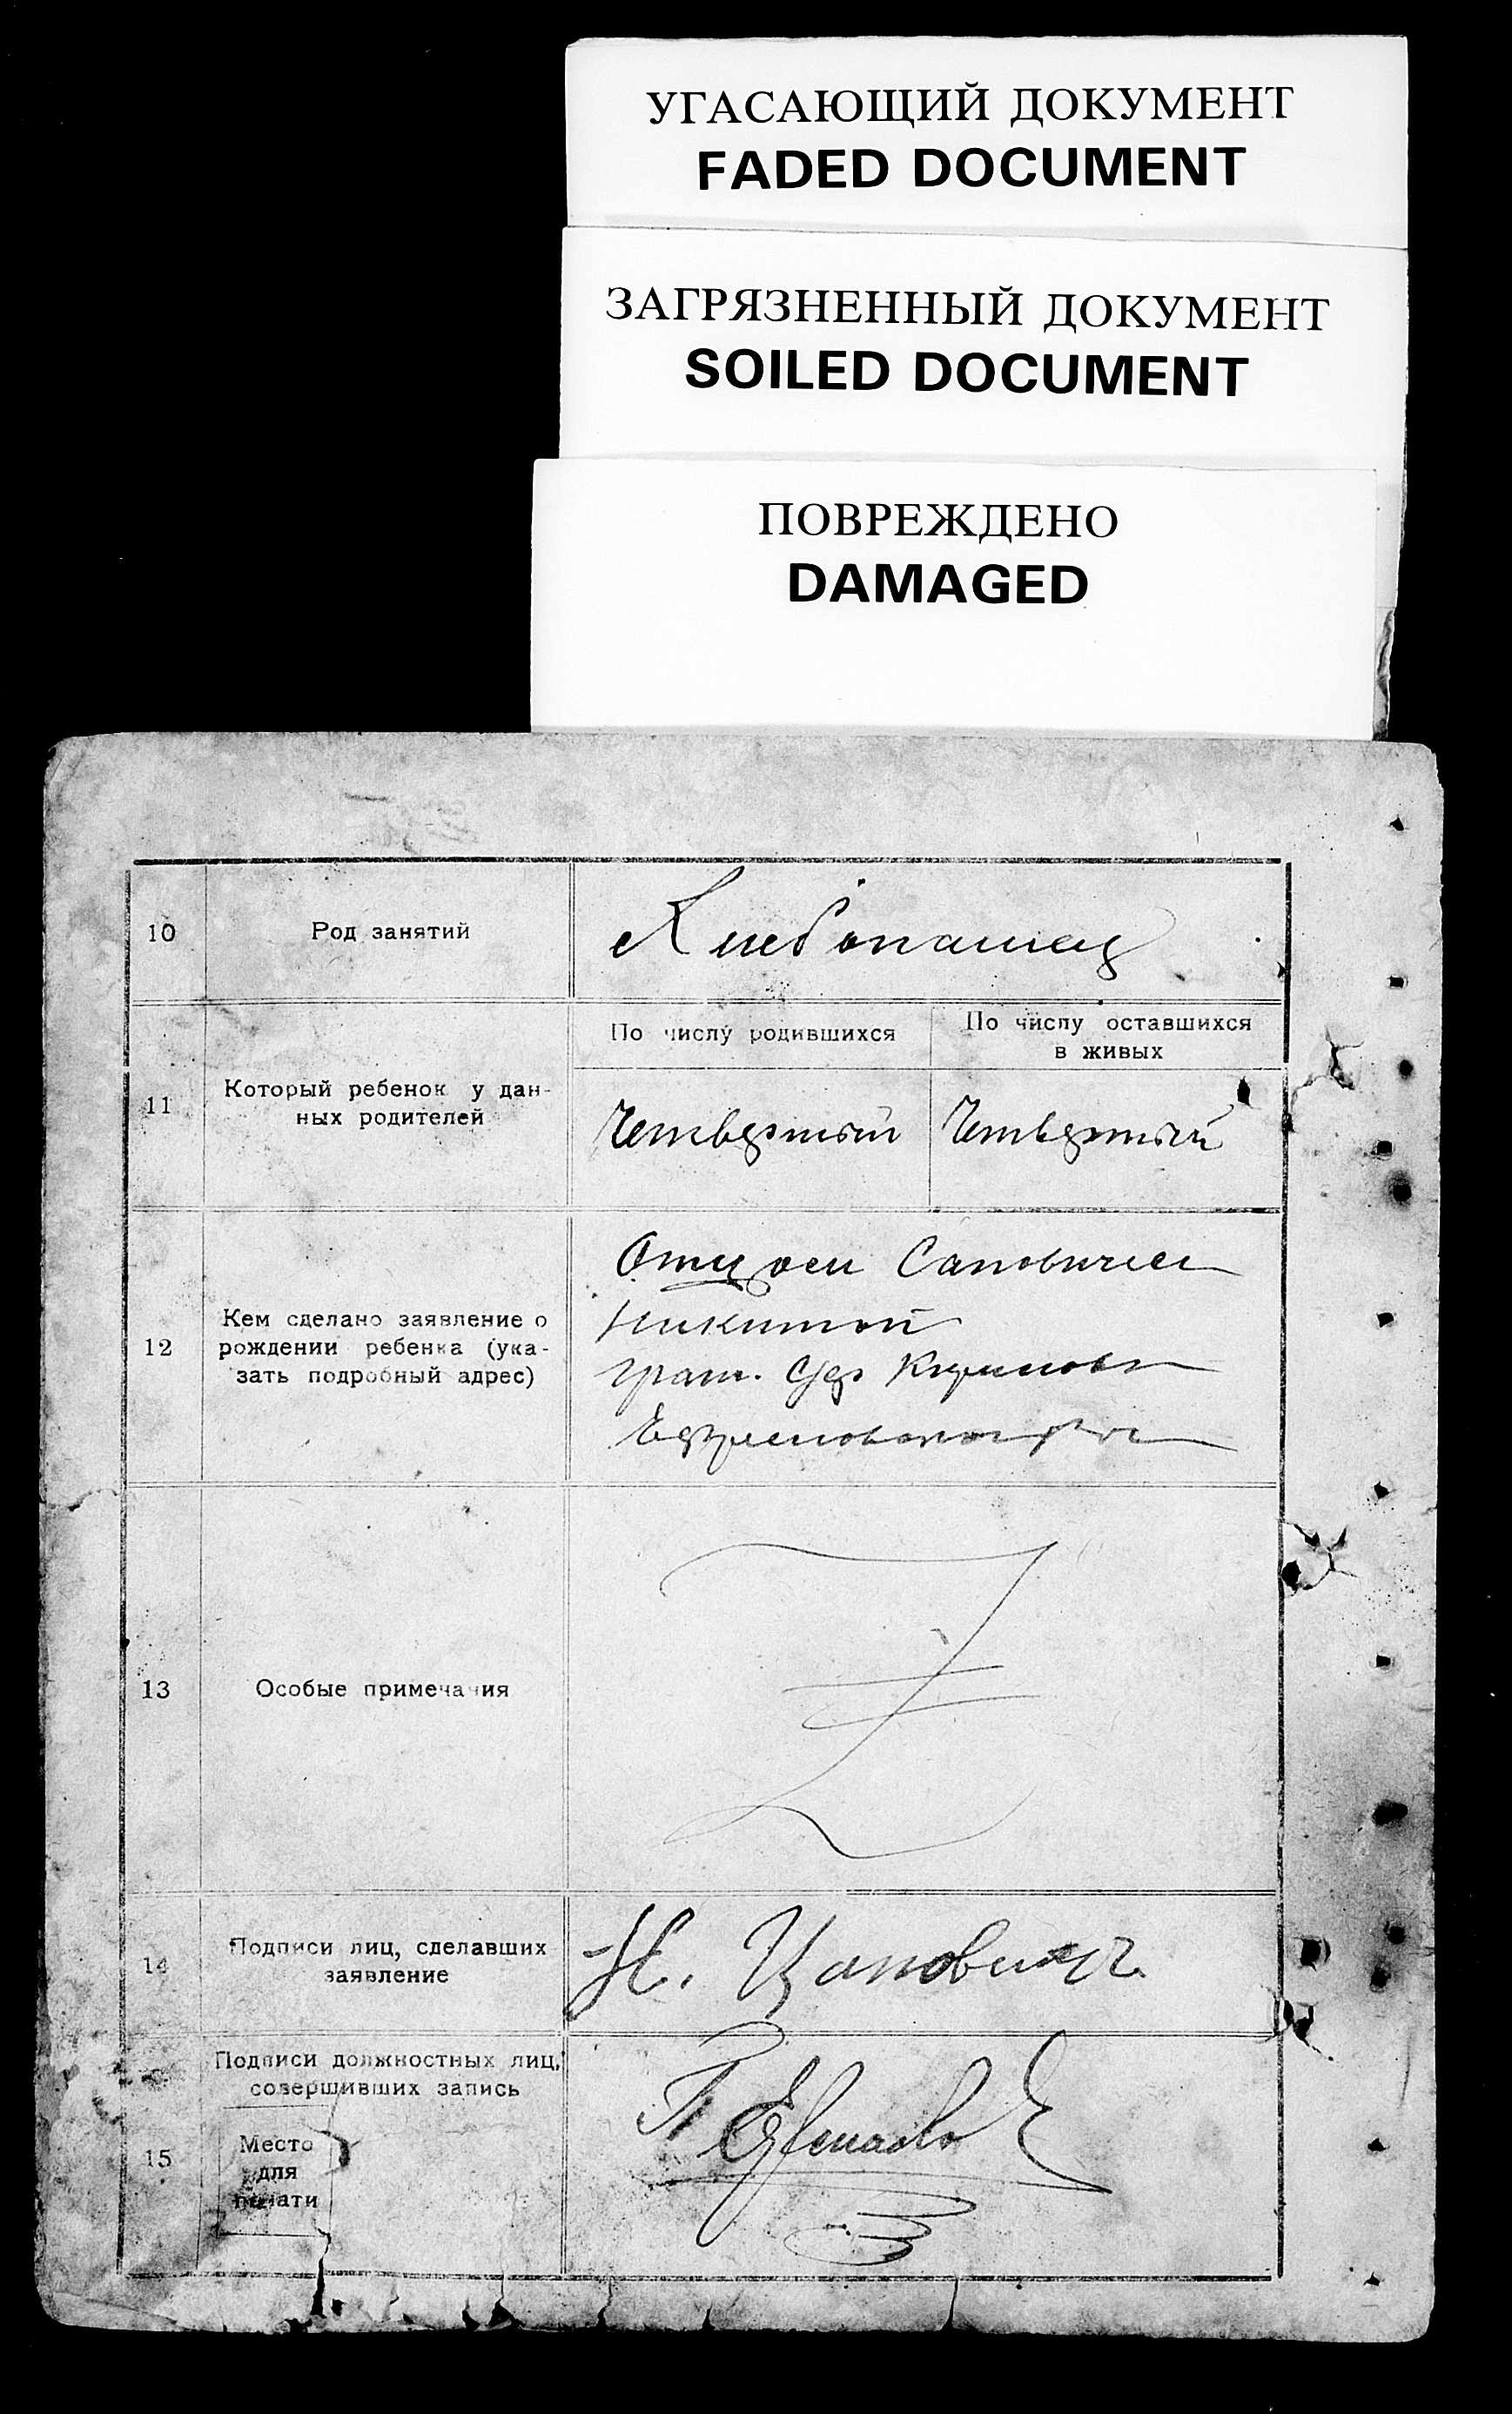 УГАСАЮЩИЙ ДОКУМЕНТ
FADED DOCUMENT
ЗАГРЯЗНЕННЫЙ ДОКУМЕНТ
SOILED DOCUMENT
ПОВРЕЖДЕНО
DAMAGED
10
Род занятий
Хлебопашец
11
Который ребенок у дан-
ных родителей
По числу родившихся
Четвертый
По числу оставшихся
в живых
Четвертый
12
Кем сделано заявление о
рождении ребенка (ука-
зать подробный адрес)
Отцом
Никитой
13
Особые примечания
14
Подписи лиц, сделавших
заявление
Н.
15
Подписи должностных лиц,
совершивших запись
Место
для
печати